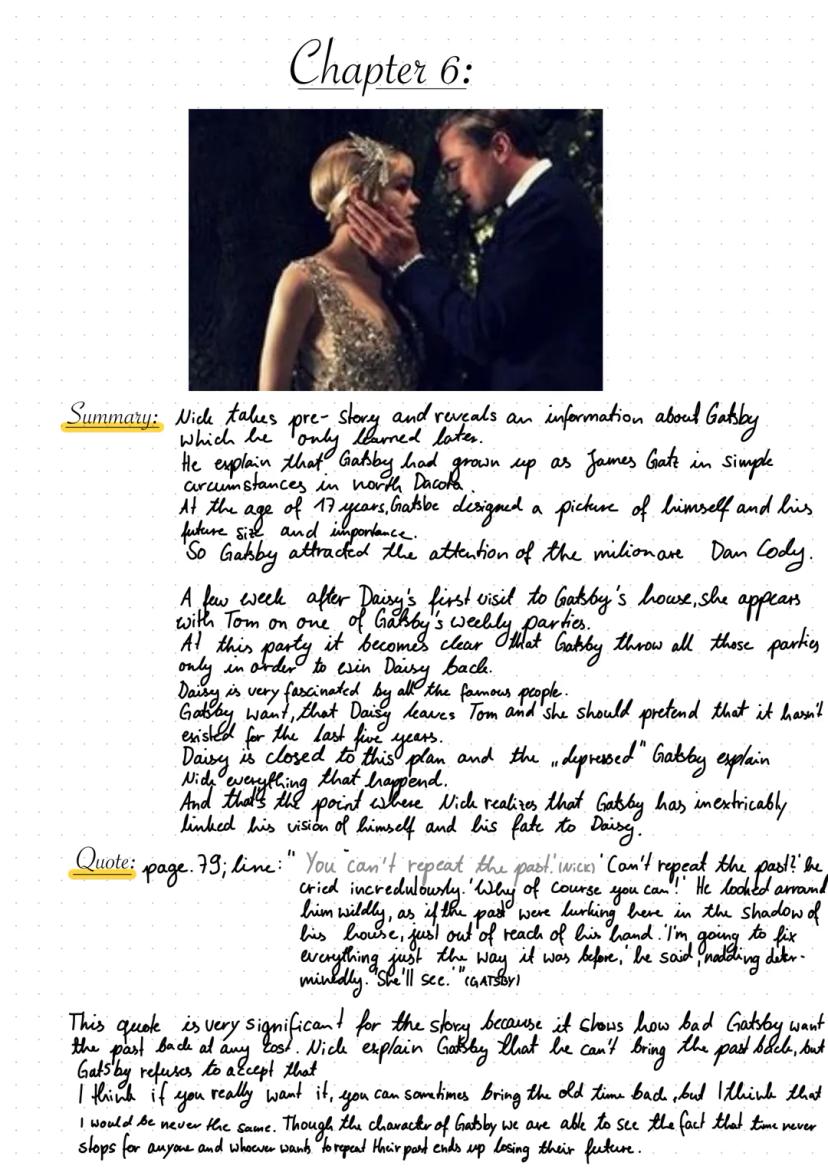 Chapter 6:
Summary: Nick takes pre-story and reveals an information about Gatsby
which he only learned later.
He explain that Gatsby had grown up as James Gatz in simple
circumstances in north Dacota
At the age of 17 years, Gatsbe designed a picture of himself and his
future size and importance.
So Gatsby attracted the attention of the milionare Dan Cody.
A few week after Daisy's first visit to Gatsby's house, she appears
with Tom on one of Gatsby's weekly parties.
At this party it becomes clear that Gatsby throw all those parties
only in order to win Daisy back.
Daisy is very fascinated by all the famous people.
Gatsby want, that Daisy leaves Tom and she should pretend that it hasn't
existed for the last five years.
Daisy is closed to this plan and the „depressed" Gatsby explain
Nick everything that happend.
And that's the point where Nick realizes that Gatsby has inextricably
linked his vision of himself and his fate to Daisy.
Quote: page. 79; line: " You can't repeat the past.' (NICK) 'Can't repeat the past?' he
cried incredulously. 'Why of course you can!' He looked arround
him wildly, as if the past were lurking here in the shadow of
his house, just out of reach of his hand. 'I'm going to fix
everything just the way it was before,' he said, nodding deter-
minedly. 'She'll see.'" (GATSBY)
This quote is very significant for the story because it shows how bad Gatsby want
the past back at any cost. Nick explain Gatsby that he can't bring the past back, but
Gatsby refuses to accept that
I think if you really want it, you can sometimes bring the old time back, but I think that
I would be never the same. Though the character of Gatsby we are able to see the fact that time never
stops for anyone and whoever wants to repeat their past ends up losing their future.